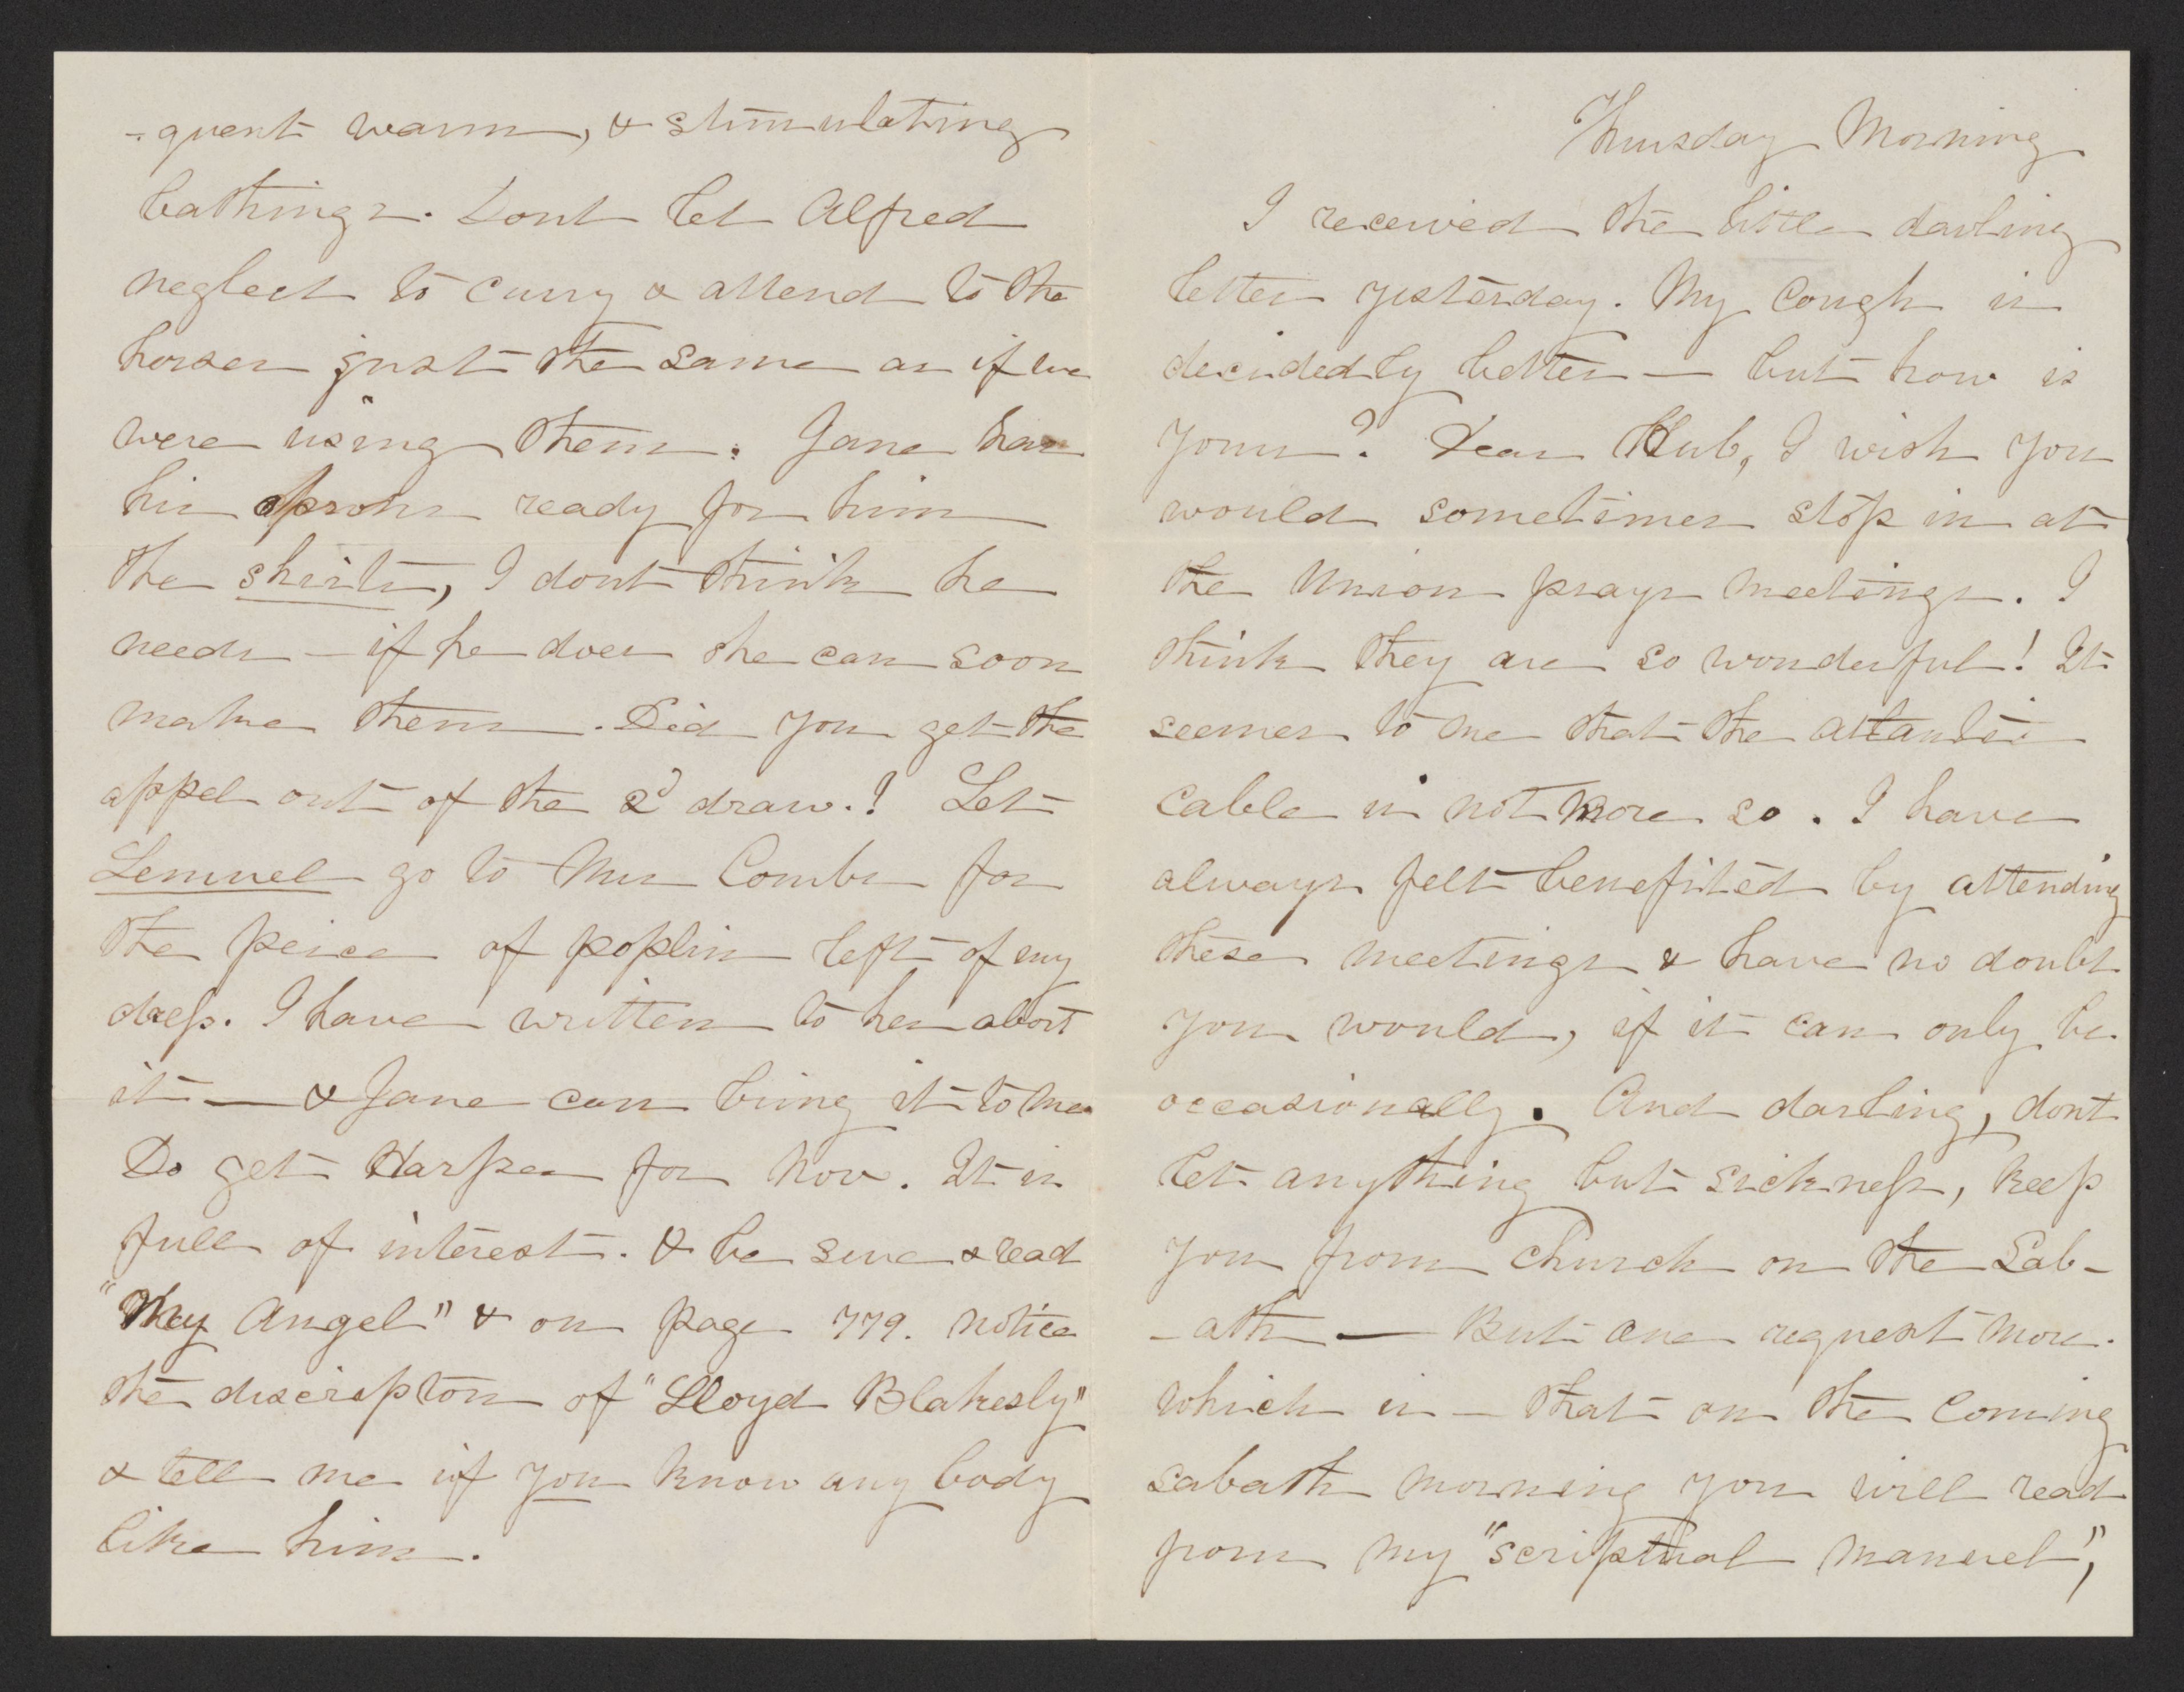 -quent warm, & stimulating
bathings. Dont let Alfred
neglect to curry & attend to the
horses just the same as if we
were using them. Jane has
his aprons ready for him
the shirts, I dont think he
needs – if he does she can soon
make them. Did you get the
appel out of the 2d draw.? Let
Lemuel go to Mrs Combs for
the peice of poplin left of my
dress. I have written to her about
it — & Jane can bring it to me
Do get Harper for Nov. It is
full of interest. & be sure & read
"My Angel" & on page 779. notice
the discripton of "Lloyd Blakesly"
& tell me if you know any body
like him.
Thursday Morning
I received the little darling
letter yesterday. My cough is
decidedly better — but how is
yours? Dear Hub, I wish you
would sometimes stop in at
the Union prayr meetings. I
think they are so wonderful! It
seemes to me that the atlantic
cable is not more so. I have
always felt benefited by attending
these meetings & have no doubt
you would, if it can only be
occasionally. And darling, dont
let anything but sickness, keep
you from Church on the Sab-
-ath — But one request more.
which is – that on the coming
sabath morning you will read
from my "scriptual manuel",